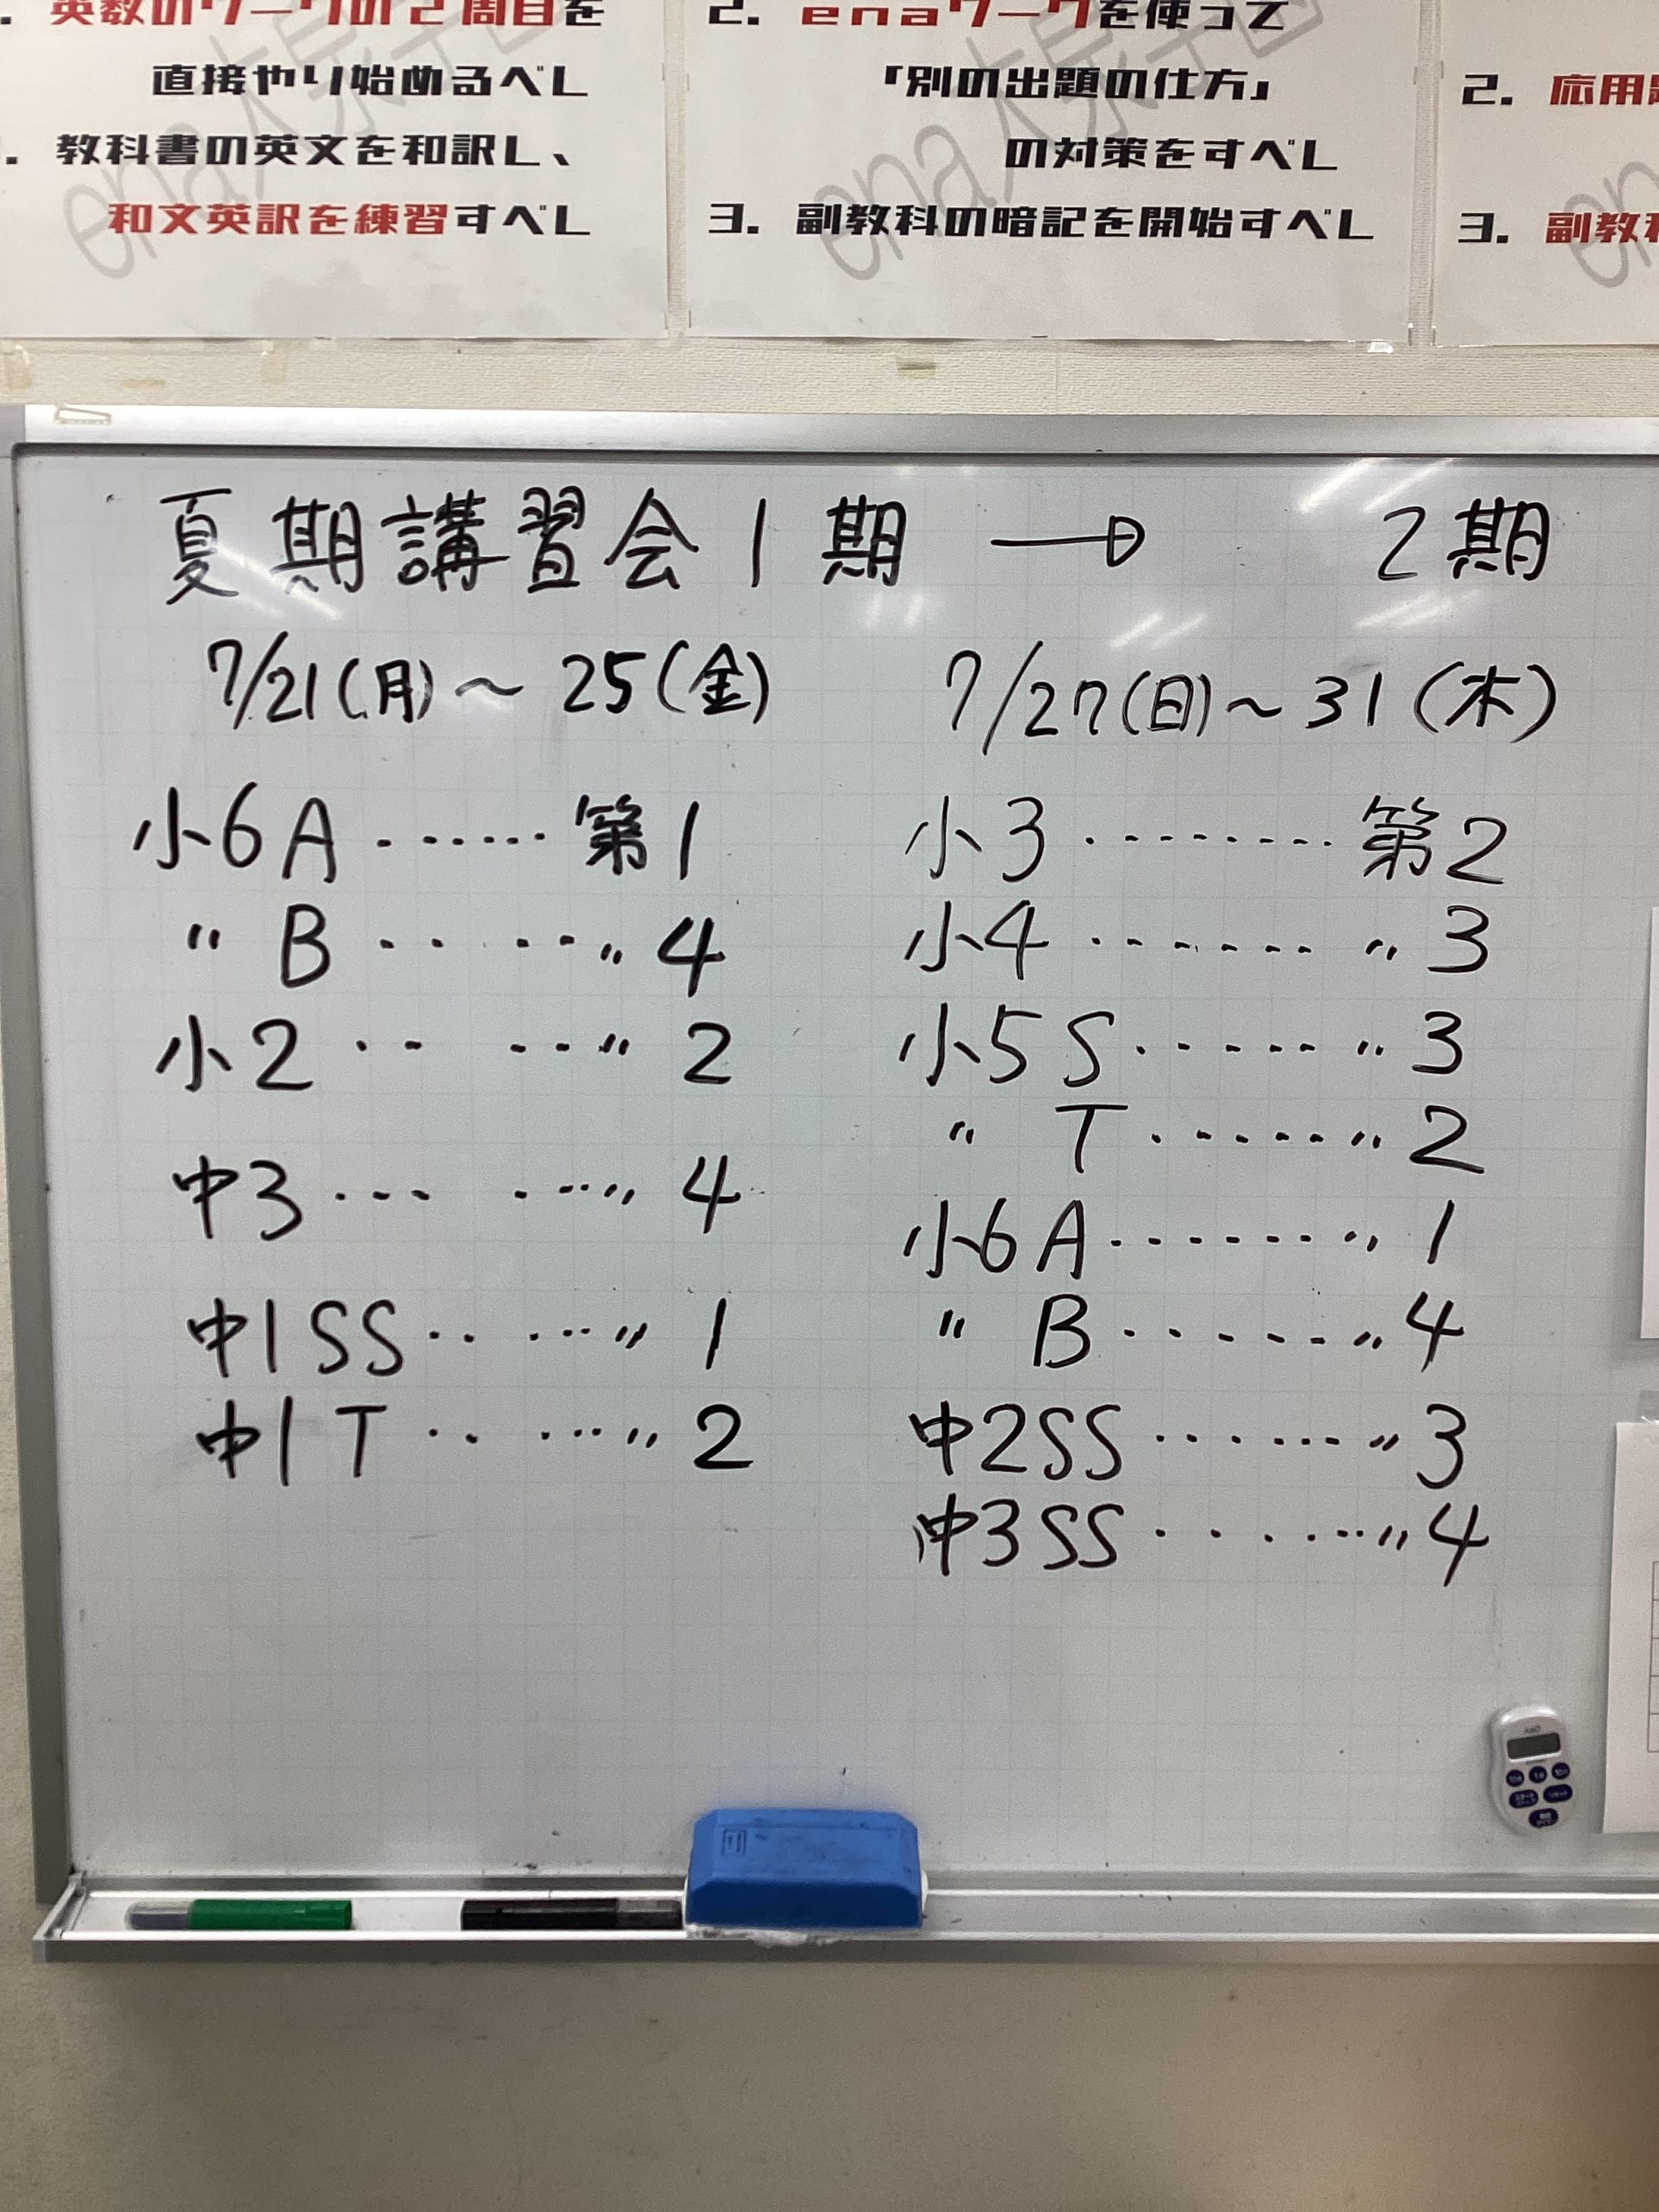 英数のワークの2周目を
直接やり始めるべし
教科書の英文を和訳し、
和文英訳を練習すべし
2. enaワークを使って
「別の出題の仕方」
の対策をすべし
3. 副教科の暗記を開始すべし
2. 応用
3. 副教科
夏期講習会1期 → 2期
7/21(月)～25(金) 7/27(日)～31(木)
小6A ‥‥‥ 第1
〃 B ‥‥‥ 〃 4
小2 ‥‥‥ 〃 2
中3 ‥‥‥ 〃 4
中1SS ‥‥‥ 〃 1
中1T ‥‥‥ 〃 2
小3 ‥‥‥‥ 第2
小4 ‥‥‥‥ 〃 3
小5S ‥‥‥ 〃 3
〃 T ‥‥‥ 〃 2
小6A ‥‥‥‥ 〃 1
〃 B ‥‥‥ 〃 4
中2SS ‥‥‥‥ 〃 3
中3SS ‥‥‥‥ 〃 4